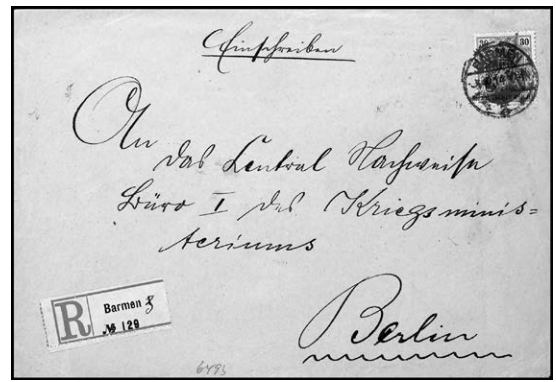 Einschreiben
30 30
An
das Central Nachweise
Büro I des Kriegsminis=
teriums
R Barmen 8
№ 129
Berlin
6493